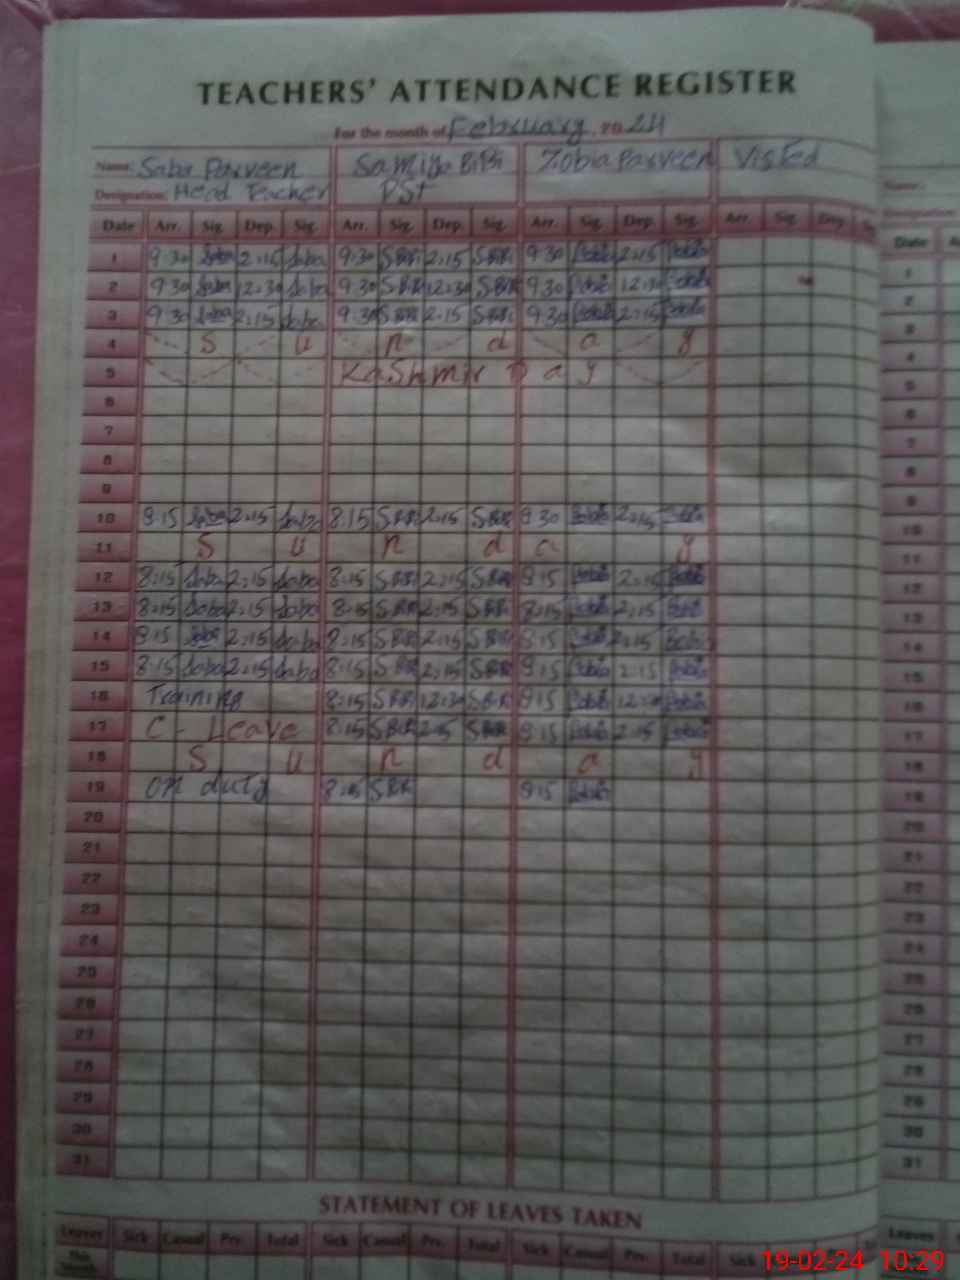 TEACHERS' ATTENDANCE REGISTER
For the month of February, 2024
Name: Saba Parveen Samiya Bibi Zobia Parveen Visted
Designation: Head Teacher PST
Date Arr. Sig. Dep. Sig. Arr. Sig. Dep. Sig. Arr. Sig. Dep. Sig. Arr. Sig. Dep.
1 9:30 Saba 2:15 Saba 9:30 SBR 2:15 SBR 9 30 2:15
2 9 30 Saba 12:30 Saba 9:30 SBR 12:30 SBR 9:30 12:30
3 9:30 Saba 2:15 Saba 9:30 SBR 2:15 SBR 9:30 2:15
4 S u n d a y
5 Kashmir Day
6
7
8
9
10 8:15 Saba 2:15 Saba 8:15 SBR 2:15 SBR 8 30 2:15
11 S u n d a y
12 8:15 Saba 2:15 Saba 8:15 SBR 2:15 SBR 8:15 2:15
13 8:15 Saba 2:15 Saba 8:15 SBR 2:15 SBR 8:15 2:15
14 8:15 Saba 2:15 Saba 8:15 SBR 2:15 SBR 8:15 2:15
15 8:15 Saba 2:15 Saba 8:15 SBR 2:15 SBR 8:15 2:15
16 Training 8:15 SBR 12:30 SBR 8:15 12:30
17 C - Leave 8:15 SBR 2:15 SBR 8:15 2:15
18 S u n d a y
19 on duty 8:15 SBR 8:15
20
21
22
23
24
25
26
27
28
29
30
31
STATEMENT OF LEAVES TAKEN
Leaves Sick Casual Prv. Total Sick Casual Prv. Total Sick Casual Prv. Total Sick
This Month
Name:
Designation:
Date
1
2
3
4
5
6
7
8
9
10
11
12
13
14
15
16
17
18
19
20
21
22
23
24
25
26
27
28
29
30
31
Leaves
19-02-24 10:29